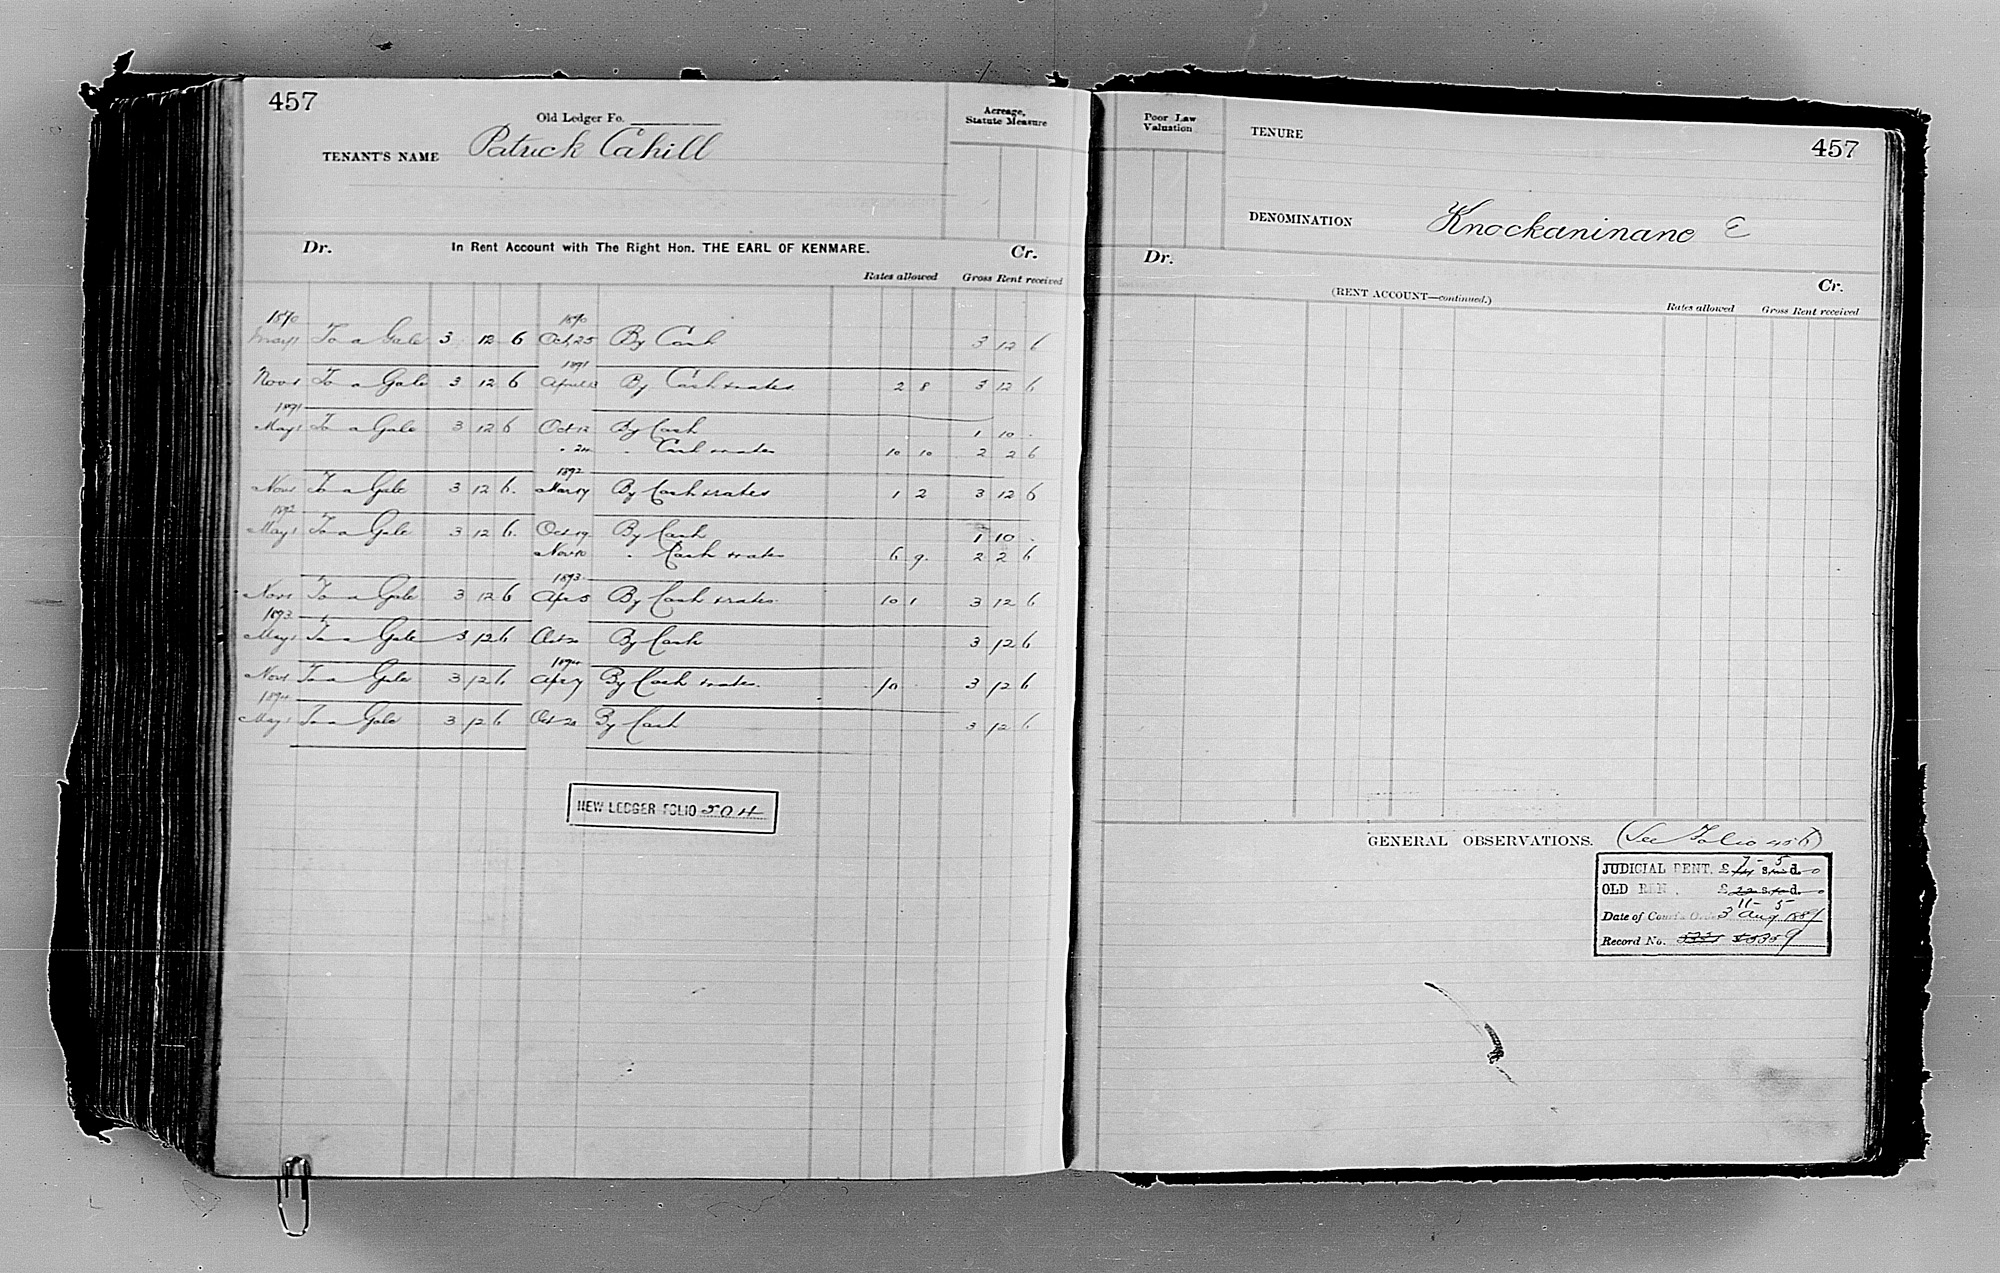 457
Old Ledger Fo.
TENANT'S NAME Patrick Cahill
Acreage,
Statute Measure
Dr. In Rent Account with The Right Hon. THE EARL OF KENMARE. Cr.
Rates allowed Gross Rent received
1890 1890
May 1 To a Gale 3 12 6 Oct 25 By Cash 3 12 6
1891
Nov 1 To a Gale 3 12 6 April By Cash & rates 2 8 3 12 6
1891
May 1 To a Gale 3 12 6 Oct 12 By Cash 1 10 -
" " Cash & rates 10 10 2 2 6
1892
Nov 1 To a Gale 3 12 6 Mar 17 By Cash & rates 1 2 3 12 6
1892
May 1 To a Gale 3 12 6 Oct 19 By Cash 1 10 -
Nov 10 " Cash & rates 6 9 2 2 6
1893
Nov 1 To a Gale 3 12 6 Apr 5 By Cash & rates 10 1 3 12 6
1893
May 1 To a Gale 3 12 6 Oct 20 By Cash 3 12 6
1894
Nov 1 To a Gale 3 12 6 Apr 7 By Cash & rates 10 - 3 12 6
1894
May 1 To a Gale 3 12 6 Oct 20 By Cash 3 12 6
NEW LEDGER FOLIO 504
Poor Law
Valuation
TENURE
457
DENOMINATION Knockaninane E
Dr. Cr.
(RENT ACCOUNT—continued.)
Rates allowed Gross Rent received
GENERAL OBSERVATIONS. (See Folio 456)
7 - 5
JUDICIAL RENT. £ s. d. 0
OLD REN. £ 22 s. d. 0
11 - 5
Date of Court's Order 3 Aug 1889
Record No.